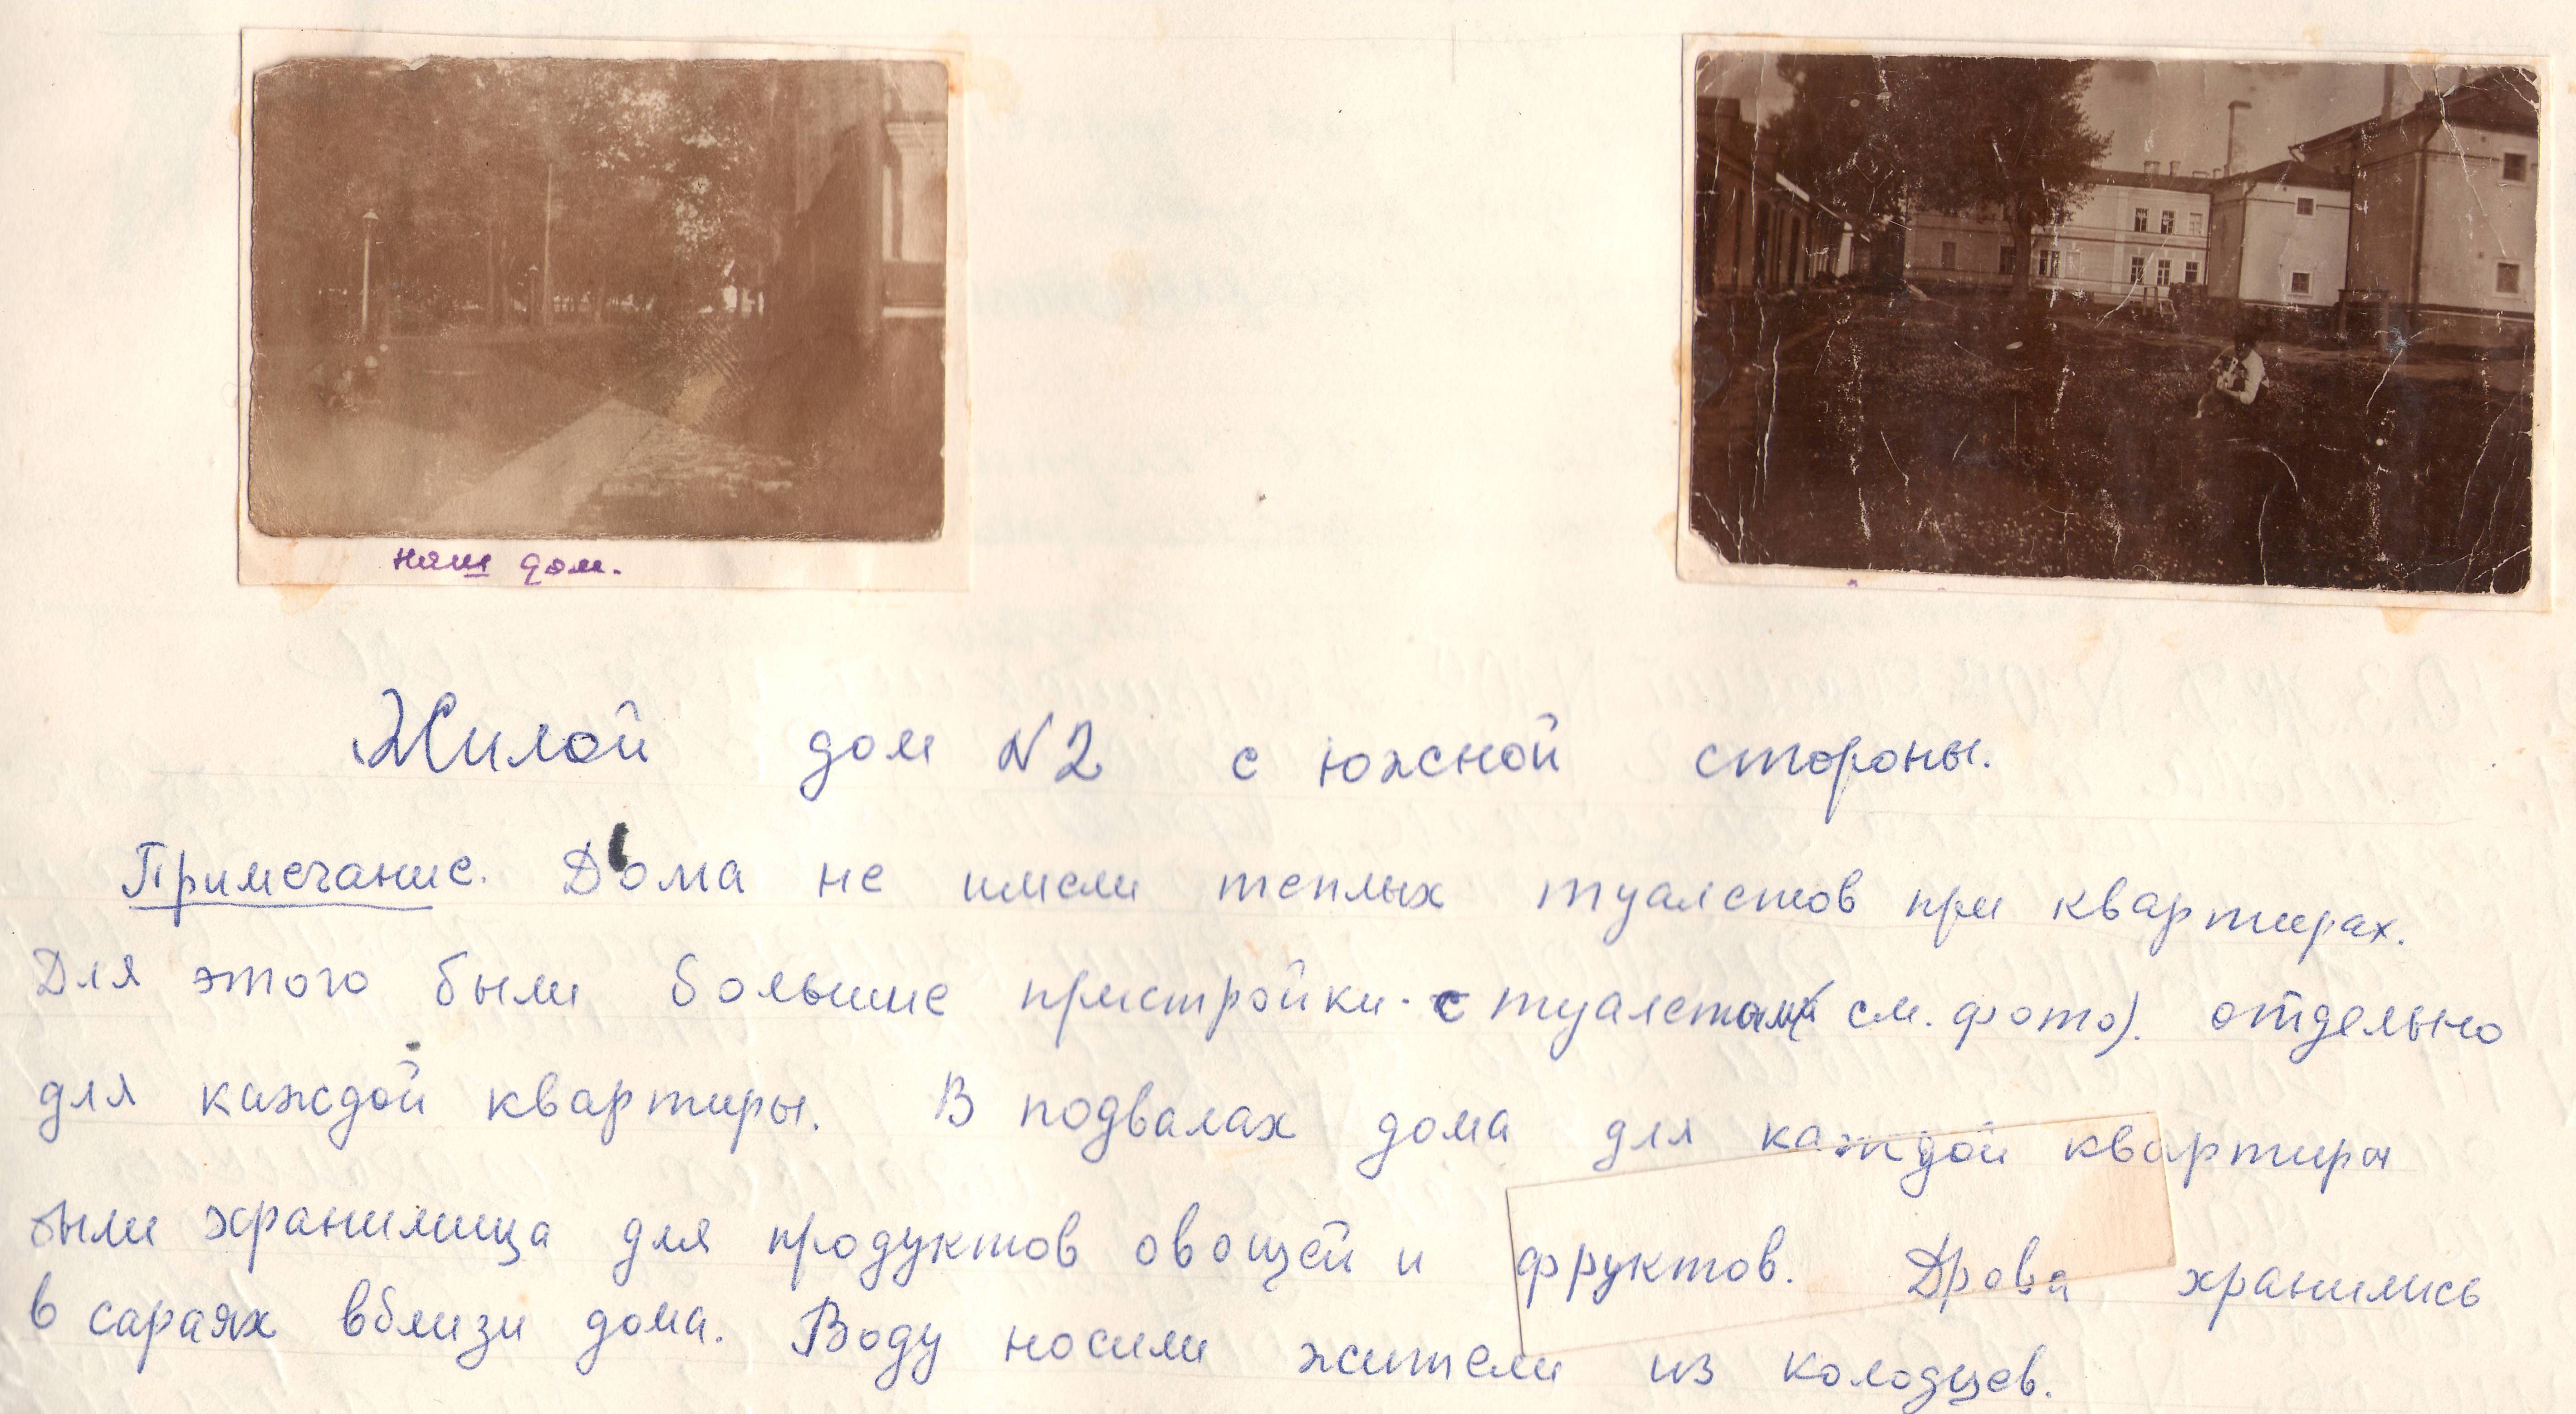 наш дом.
Жилой дом N2 с южной стороны.
Примечание. Дома не имели теплых туалетов при квартирах.
Для этого были большие пристройки с туалетами см. фото). отдельно
для каждой квартиры. В подвалах дома для каждой квартиры
были хранилища для продуктов овощей и фруктов. Дрова хранились
в сараях вблизи дома. Воду носили жители из колодцев.